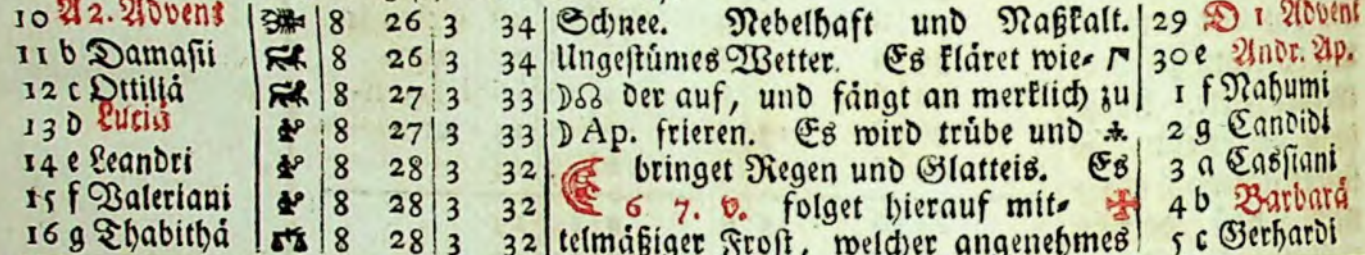 10 A 2. Advent 8 26 3 34 Schnee. Nebelhaft und Naßkalt. 29 D 1 Advent
11 b Damasii 8 26 3 34 Ungestümes Wetter. Es kläret wie⸗ 30 e Andr. Ap.
12 c Ottiliä 8 27 3 33 ☽☊ der auf, und fängt an merklich zu 1 f Nahumi
13 d Luciä 8 27 3 33 ☽ Ap. frieren. Es wird trübe und ⚹ 2 g Candidi
14 e Leandri 8 28 3 32 bringet Regen und Glatteis. Es 3 a Cassiani
15 f Valeriani 8 28 3 32 ☾ 6 7. v. folget hierauf mit⸗ 4 b Barbarä
16 g Thabithä 8 28 3 32 telmäßiger Frost, welcher angenehmes 5 c Gerhardi